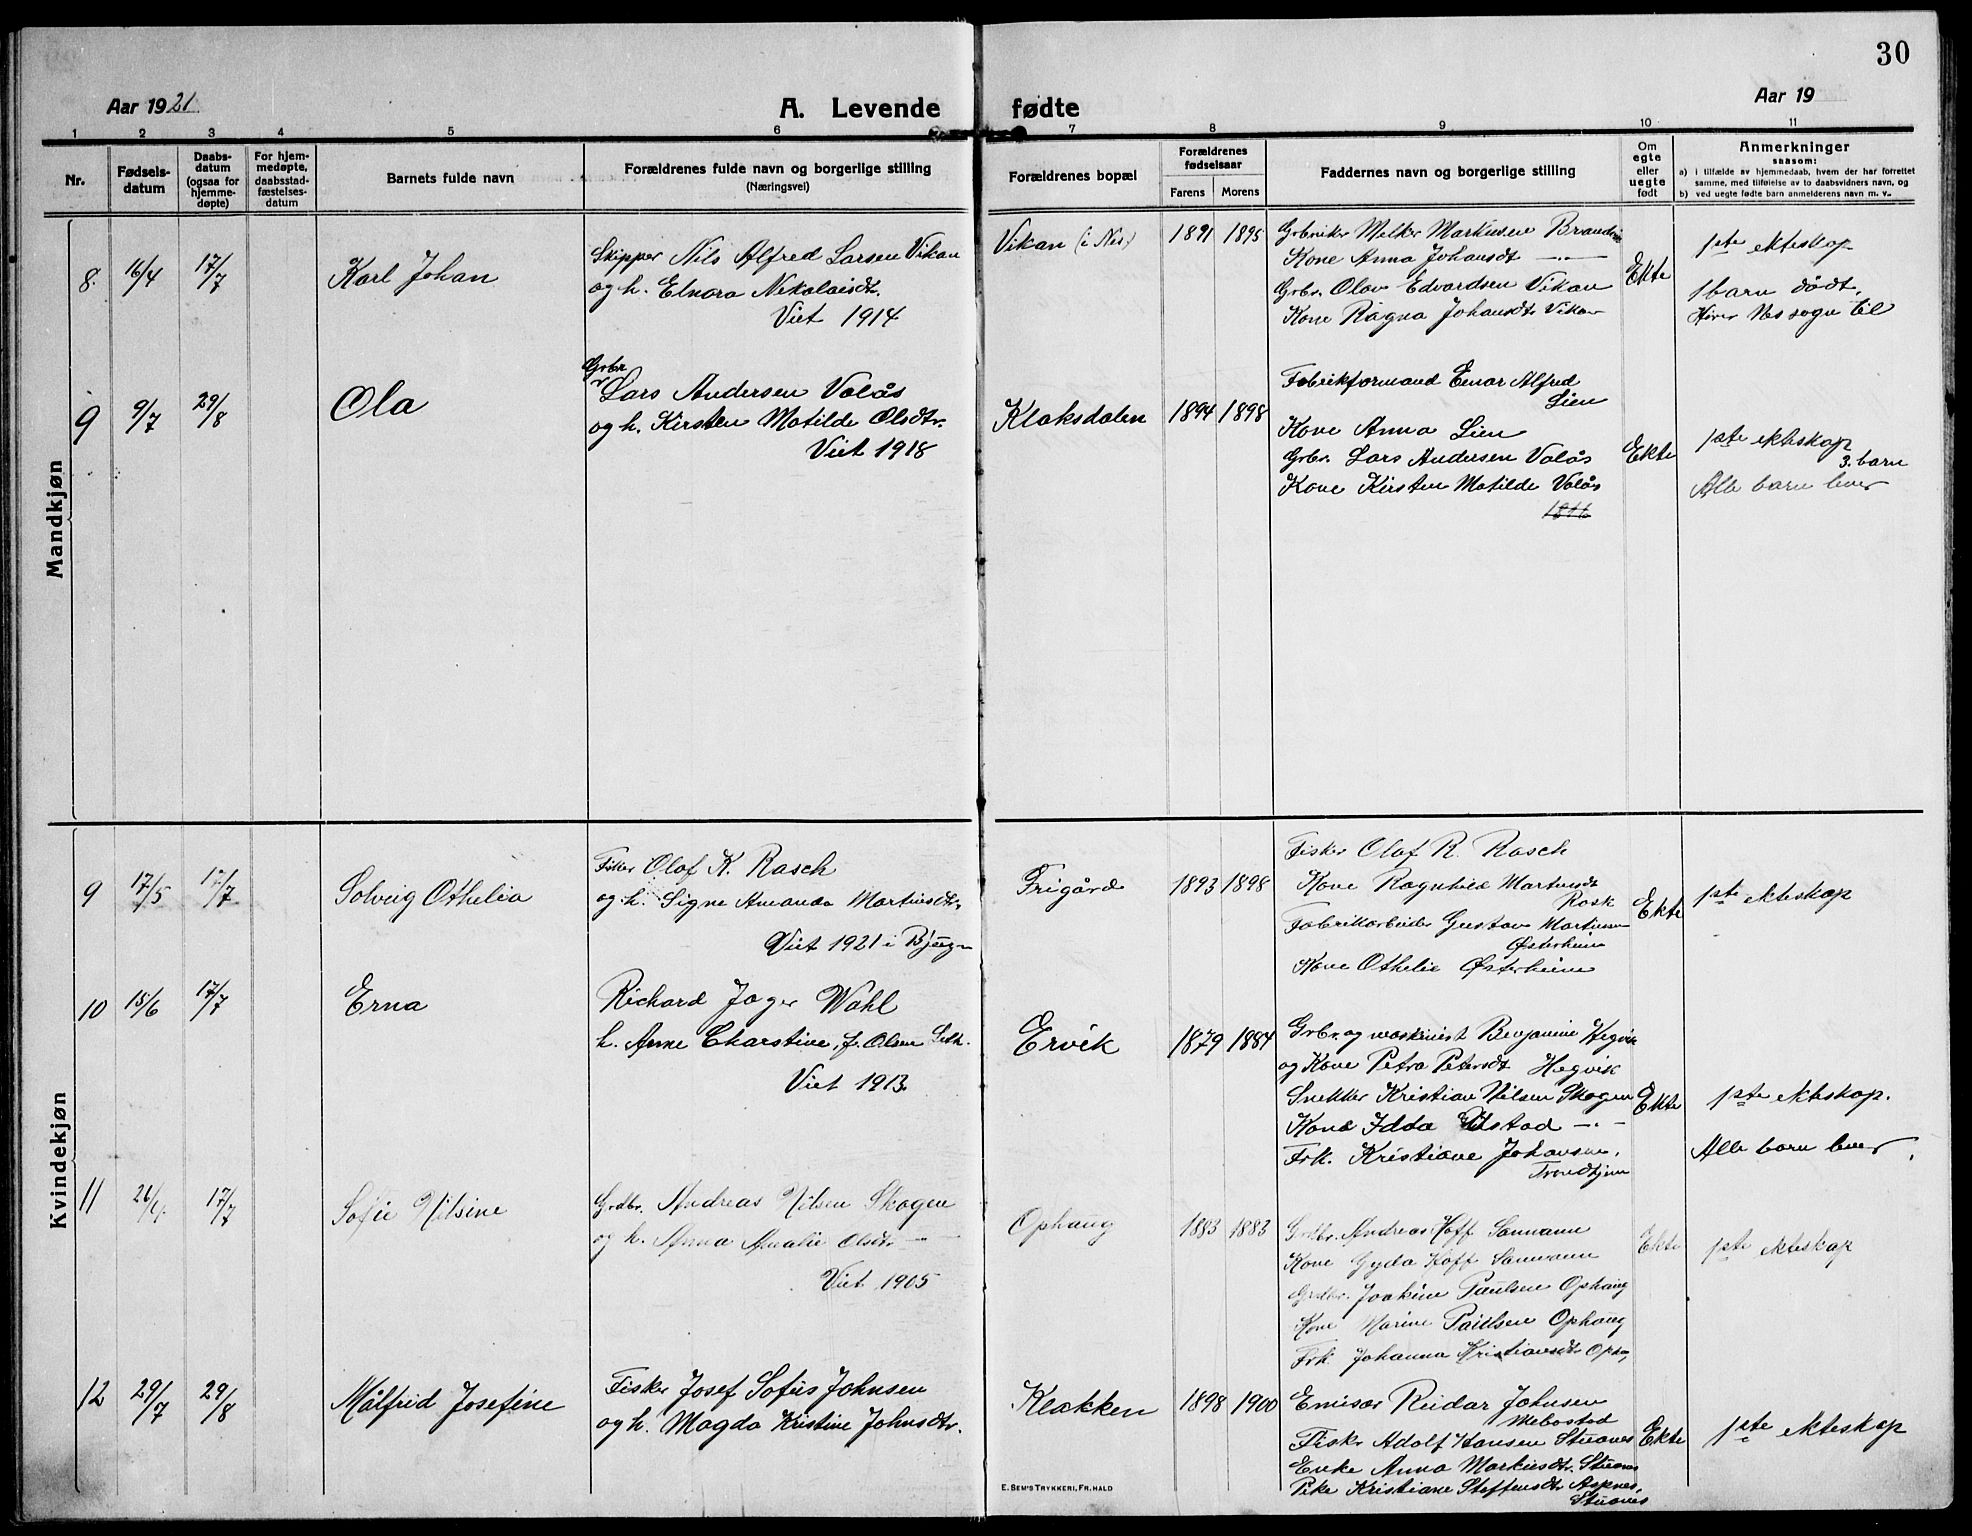 30
Aar 1921
A. Levende fødte
Aar 19
1 2 3 4 5 6 7 8 9 10 11
Nr.
Fødsels-
datum
Daabs-
datum
(ogsaa for
hjemme-
døpte)
For hjem-
medøpte,
daabsstad-
fæstelses-
datum
Barnets fulde navn
Forældrenes fulde navn og borgerlige stilling
(Næringsvei)
Forældrenes bopæl
Forældrenes
fødselsaar
Farens Morens
Faddernes navn og borgerlige stilling
Om
egte
eller
uegte
født
Anmerkninger
saasom:
a) i tilfælde av hjemmedaab, hvem der har forrettet
samme, med tilføielse av to daabsvidners navn, og
b) ved uegte fødte barn anmelderens navn m. v..
Mandkjøn
8. 16/4 17/7 Karl Johan
Skipper Nils Alfred Larsen Vikan
og h. Elnora Nikolaisdtr.
Viet 1914
Vikan (i Nes) 1891 1895
Grbruker Melker Markussen
Kone Anna Johansdt —"—
Grbr. Olav Edvardsen Vikan
Kone Ragna Johansdtr Vikan
Ekte
1ste ekteskap
1 barn dödt.
Hörer Nes sogn til
9 9/7 29/8 Ola
Grbr
Lars Andersen Valås
og h. Kirsten Matilde Olsdtr.
Viet 1918
Klaksdalen 1894 1898
Fabrikformand Einar Alfred
Lien
Kone Anna Lien
Grbr. Lars Andersen Valås
Kone Kirsten Matilde Valås
Ekte
1ste ekteskap
3. barn
Alle barn lever
Kvindekjøn
9 17/5 17/7 Solveig Othelia
Fisker Olaf K. Rasch
og h. Signe Amanda Martinsdtr.
Viet 1921 i Bjugn
Frigård 1893 1898
Fisker Olaf R. Rasch
Kone Ragnhild Martinsdt
Rask
Fabrikarbeider Gustav Martinsen
Østerheim
Kone Othelie Østerheim
Ekte
1ste ekteskap
10 15/6 17/7 Erna
Richard Jager Wahl
h. Anne Charstine, f. Olsen
Viet 1913
Ervik 1879 1884
Grbr. og maskinist Benjamine Hegvik
og Kone Petra Petersdt Hegvik
Snekker Kristian Nilsen Skogen
Kone Idda —"—
Frk. Kristiane Johansen,
Trondhjem
Ekte
1ste ekteskap.
Alle barn lever.
11 17/7 Sofie Nilsine
Grdbr. Andreas Nilsen Skogen
og h. Anna Amalie Olsdtr —"—
Viet 1905
Ophaug 1883 1883
Grdbr. Andreas Hoff Sannann
Kone Gyda Hoff Sannann
Grdbr. Joakim Paulsen Ophaug
Kone Marine Paulsen Ophaug
Frk. Johanna Kristiansdtr Oph.
Ekte
1ste ekteskap
12 29/7 29/8 Målfrid Josefine
Fisker Josef Sofus Johnsen
og h. Magda Kristine Johnsdtr.
Klakken 1898 1900
Emisær Reidar Johnsen
Mebostad
Fisker Adolf Hansen Stuanes
Enke Anna Markusdtr. Stuanes
Pike Kristiane Steffensdtr Aspnes,
Stuanes
Ekte
1ste ekteskap
E. SEM'S TRYKKERI, FR. HALD